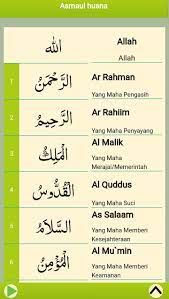 Asmaul husna
الله Allah
Allah
1 الرَّحْمَنُ Ar Rahman
Yang Maha Pengasih
2 الرَّحِيْمُ Ar Rahiim
Yang Maha Penyayang
3 الْمَلِكُ Al Malik
Yang Maha
Merajai/Memerintah
4 الْقُدُّوْسُ Al Quddus
Yang Maha Suci
5 السَّلَامُ As Salaam
Yang Maha Memberi
Kesejahteraan
6 الْمُؤْمِنُ Al Mu`min
Yang Maha Memberi
Keamanan